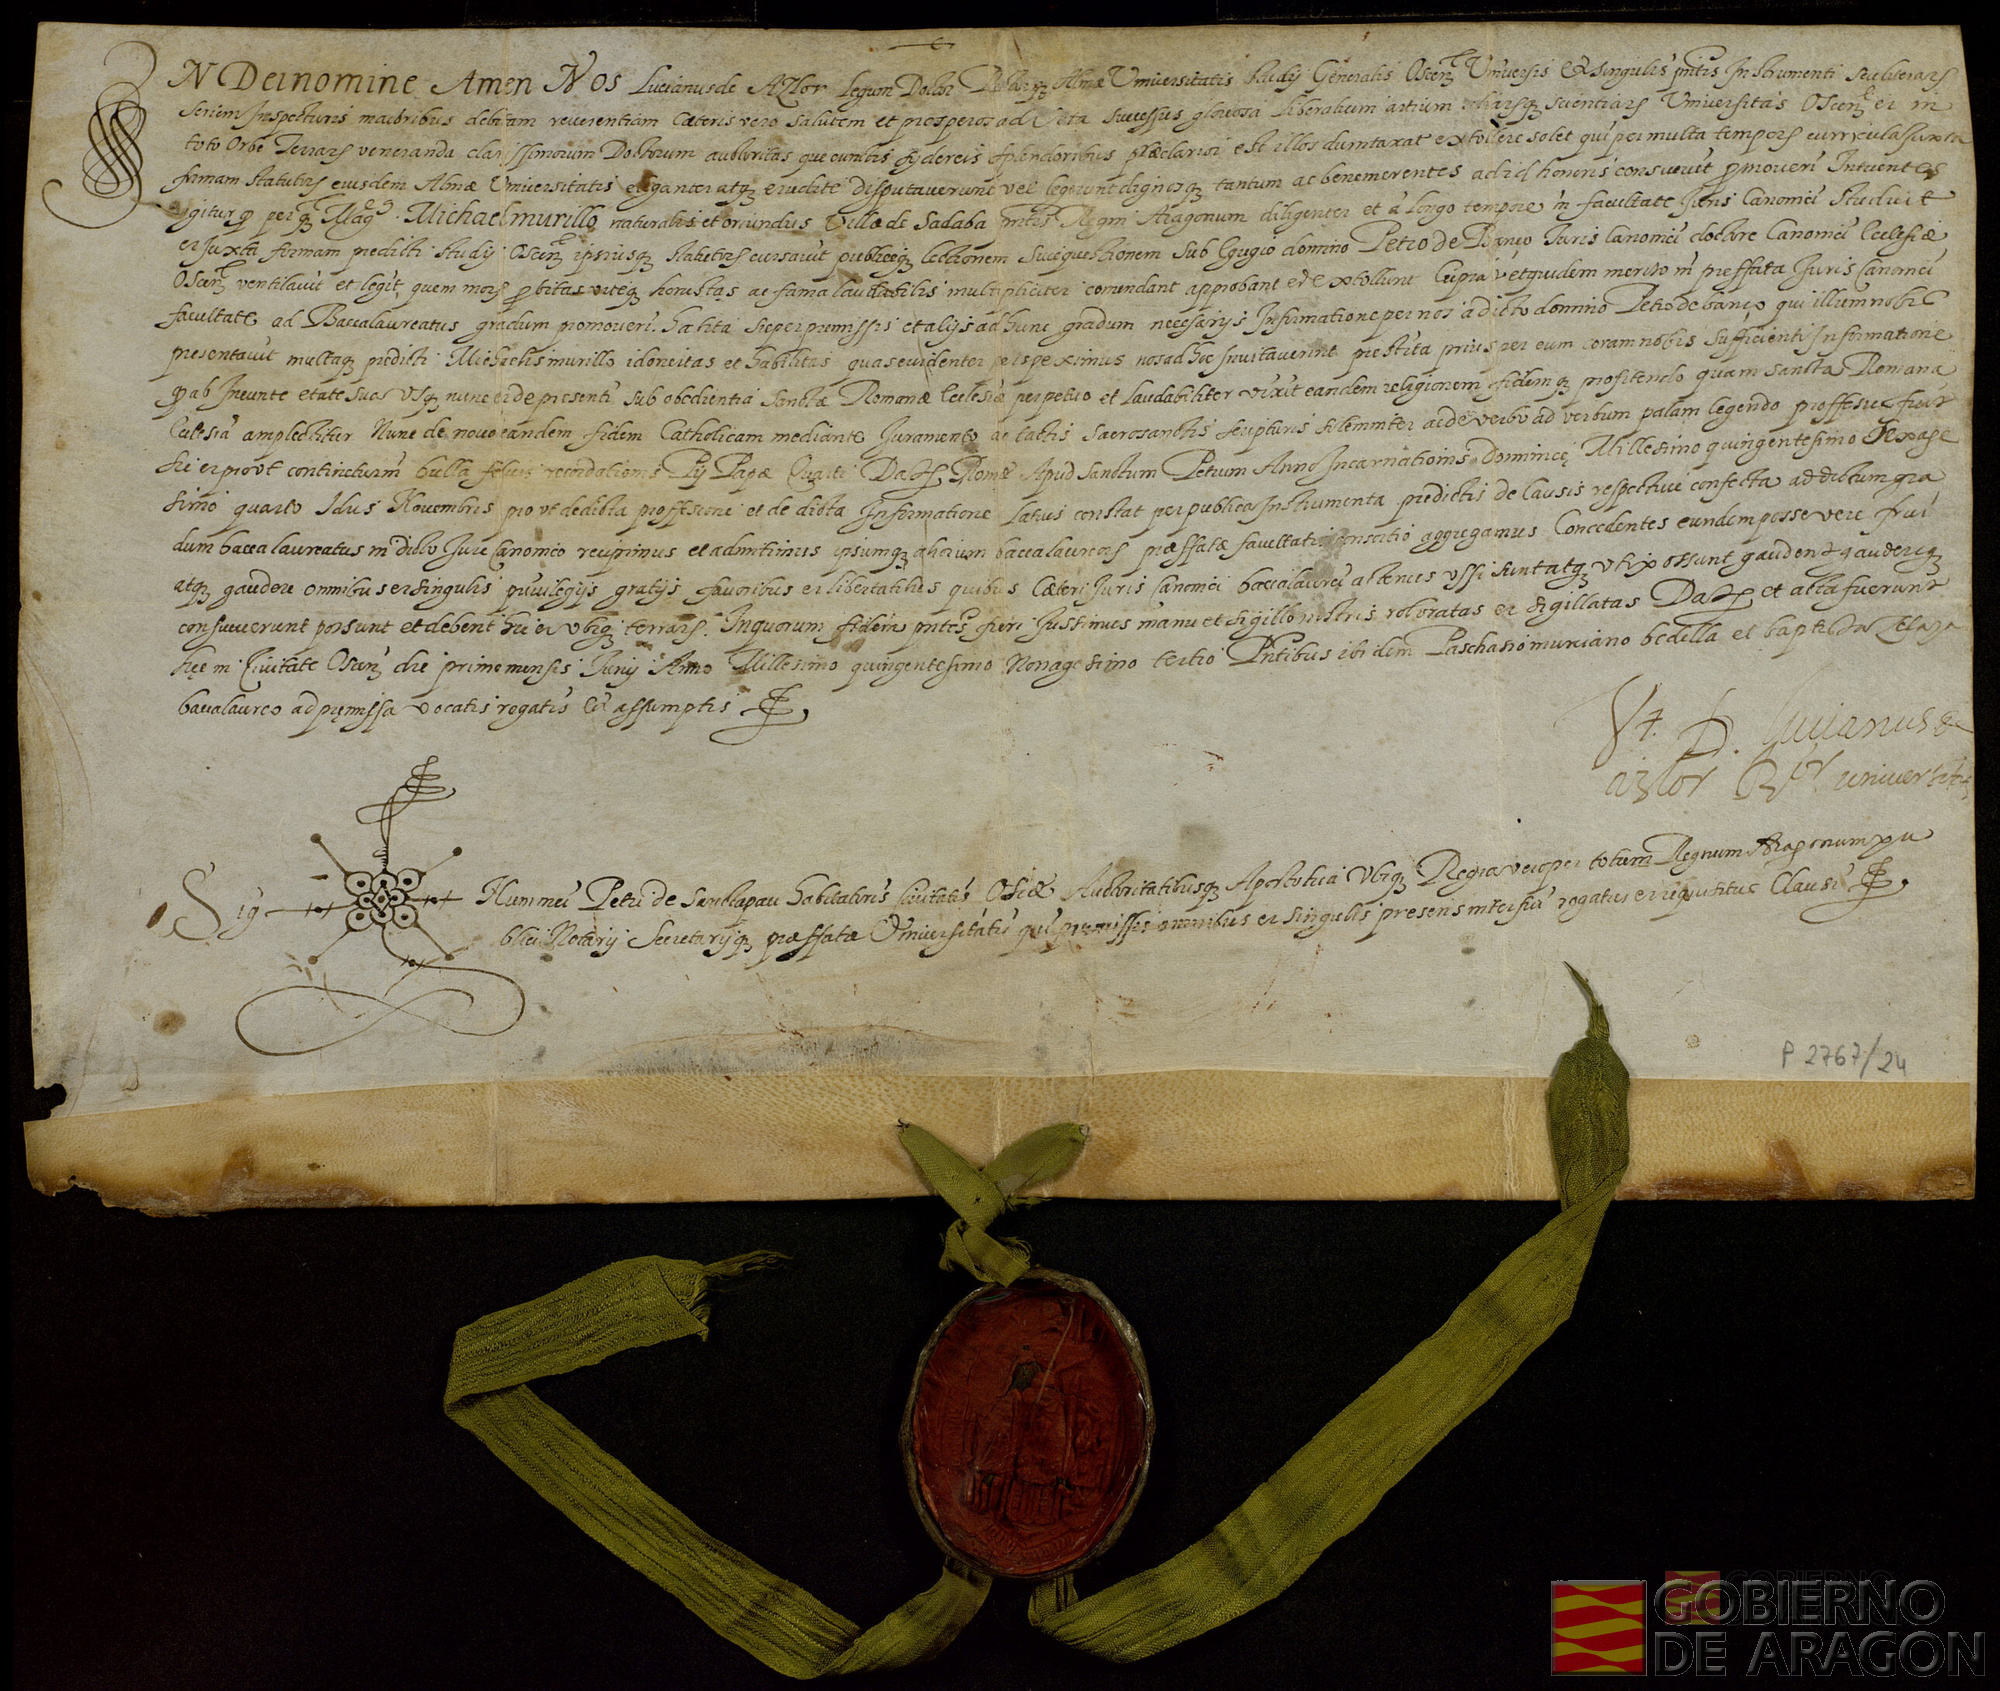 IN Dei nomine Amen Nos Lucianus de Azlor Legum Doctor Almæ Universitatis studij Generalis Oscen̄ Universis et singulis pn̄tis Instrumenti seu literarȝ
seriem Inspecturis maioribus debitam reverentiam Cæteris vero salutem et prosperos ad Vota successus gloriosa liberalium artium scientiarȝ Universitas Oscen̄ et in
toto Orbe Terrarȝ veneranda clarissimorum Doctorum authoritas que cunctis sydereis splendoribus præclarior est illos dumtaxat extollere solet qui per multa temporȝ curricula Juxta
formam statutorȝ eiusdem Almæ Universitatis eleganter atqȝ erudite disputaverunt vel legerunt dignosqȝ tantum ac benemerentes ad id honoris consuevit promoveri Intuentes
igitur qȝ Magcus Michael murillo naturalis et oriundus Villæ de Sadaba pn̄tis Regni Aragonum diligenter et a longo tempore in facultate Juris Canonici studuit
et Juxta formam predicti studij Oscen̄ ipsiusqȝ statutorȝ cursavit publiceqȝ lectionem sive questionem sub Egregio domino Petro de Banço Juris Canonici doctore Canonici Ecclesiæ
Oscen̄ ventilavit et legit, quem morȝ probitas viteqȝ honestas ac fama laudabilis multipliciter comendant approbant et extollunt Cupia vt quidem merito in preffata Juris Canonici
facultate ad Baccalaureatus gradum promoveri. habita super premissis et alijs ad hunc gradum necesarijs Informatione per nos a dicto domino Petro de banço qui illum nobis
presentavit multaqȝ predicti Michaelis murillo idoneitas et habilitas quas evidenter perspeximus nos ad hoc Invitaverint prestita prius per eum coram nobis sufficienti Informatione
qȝ ab Ineunte etate sua Vsqȝ nunc et de presenti sub obedientia Sanctæ Romanæ Ecclesiæ perpetuo et laudabiliter vixit eandem religionem fidemqȝ profitendo quam sancta Romana
Ecclesia amplectitur Nunc de novo eandem fidem Catholicam mediante Juramento ac tactis Sacrosanctis scripturis solemniter ac de verbo ad verbum palam legendo proffesus fuit
sic et prout continetur in bulla felicis recordationis Pij Papæ Quarti Datȝ Romæ Apud Sanctum Petrum Anno Incarnationis Dominicę Millesimo quingentesimo sexage
simo quarto Idus Novembris prout de dicta proffesione et de dicta Informatione latius constat per publica Instrumenta predictis de Causis respective confecta ad dictum gra
dum baccalaureatus in dicto Jure Canonico recipimus et admitimus ipsumqȝ aliorum baccalaureorȝ præffatæ facultatis consortio aggregamus Concedentes eundem posse vere frui
atqȝ gaudere omnibus et singulis privilegijs gratijs favoribus et libertatibus quibus Cæteri Juris Canonici baccalaurei actenus vssi sunt atqȝ vti possunt gaudent gaudereqȝ
consueverunt possunt et debent hic et vbiqȝ terrarȝ. Inquorum fidem pn̄tes fieri Jussimus manu et sigillo nostris roboratas et sigillatas Datȝ et acta fuerunt
hęc in Civitate Oscen̄ die primo mensis Junij Anno Millesimo quingentesimo Nonagesimo tertio Pn̄tibus ibidem Paschasio murciano bedello et baptista
baccalaureo ad premissa vocatis rogatis et assumptis
Vt. D. lucianus de
azlor Rtor universitatis
Sig num mei Petri de Santlapau habitatoris Civitatis Oscæ Authoritatibusqȝ Apostolica Vbiqȝ Regia vero per totum Regnum Aragonum pu
blici Notarij Secretarijqȝ præffatæ Vniversitatis qui premissis omnibus et singulis presens interfui rogatus et requisitus Clausi
P 2767/24
GOBIERNO
DE ARAGON